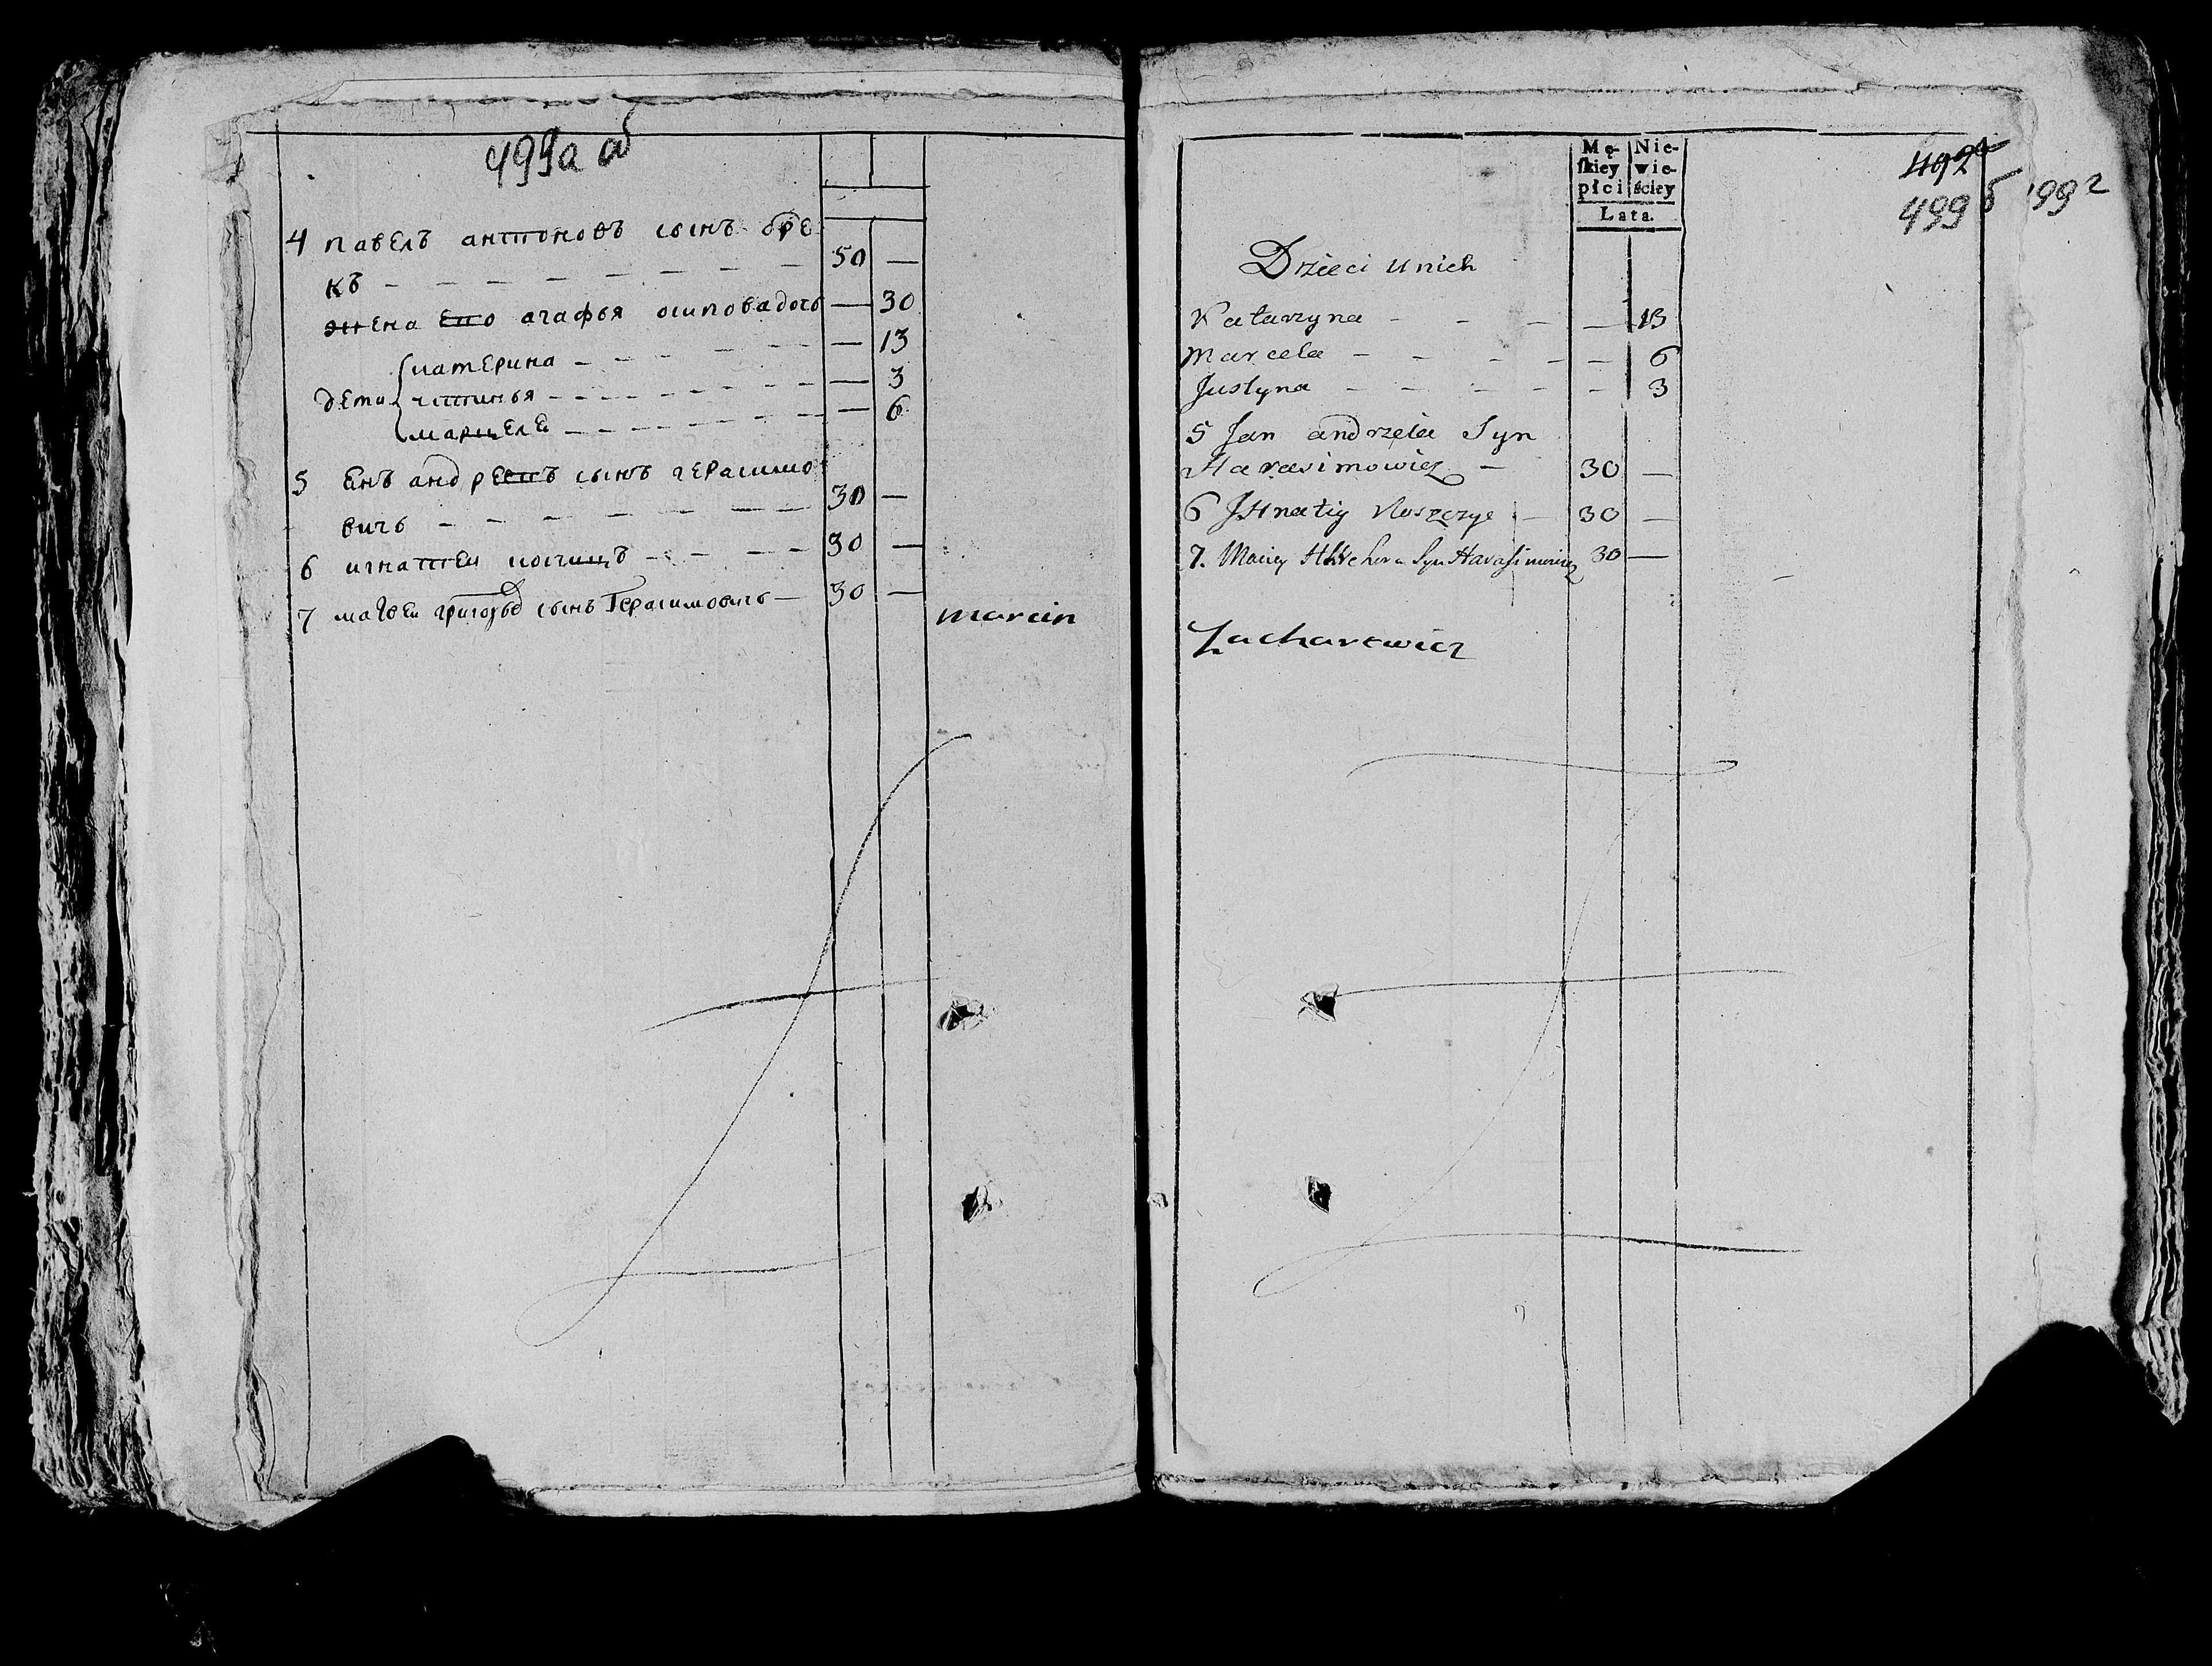 499а об
4 павелъ антоновъ сынъ бре
къ — — — — — — — 50 —
жена его агафья осиповадочь — 30
катерина — — — — — 13
дети
устинья — — — — — 3
марцеле — — — — — 6
5 Енъ андреевъ сынъ герасимо
вичъ — — — — — — 30 —
6 игнатеи — — — — 30 —
7 матвеи григорьев сынъ Герасимовичь — 30 —
marcin
Mę-
skiey
płci
Nie-
wie-
ściey
Lata.
499 б
Dzieci u nich
Katarzyna — — — — 13
Marcela — — — — — 6
Justyna — — — — — 3
5 Jan andrzeia Syn
Harasimowicz — 30 —
6 Ihnatiy — 30 —
7. Maciey Syn Harasimowicz 30 —
Zacharewicz